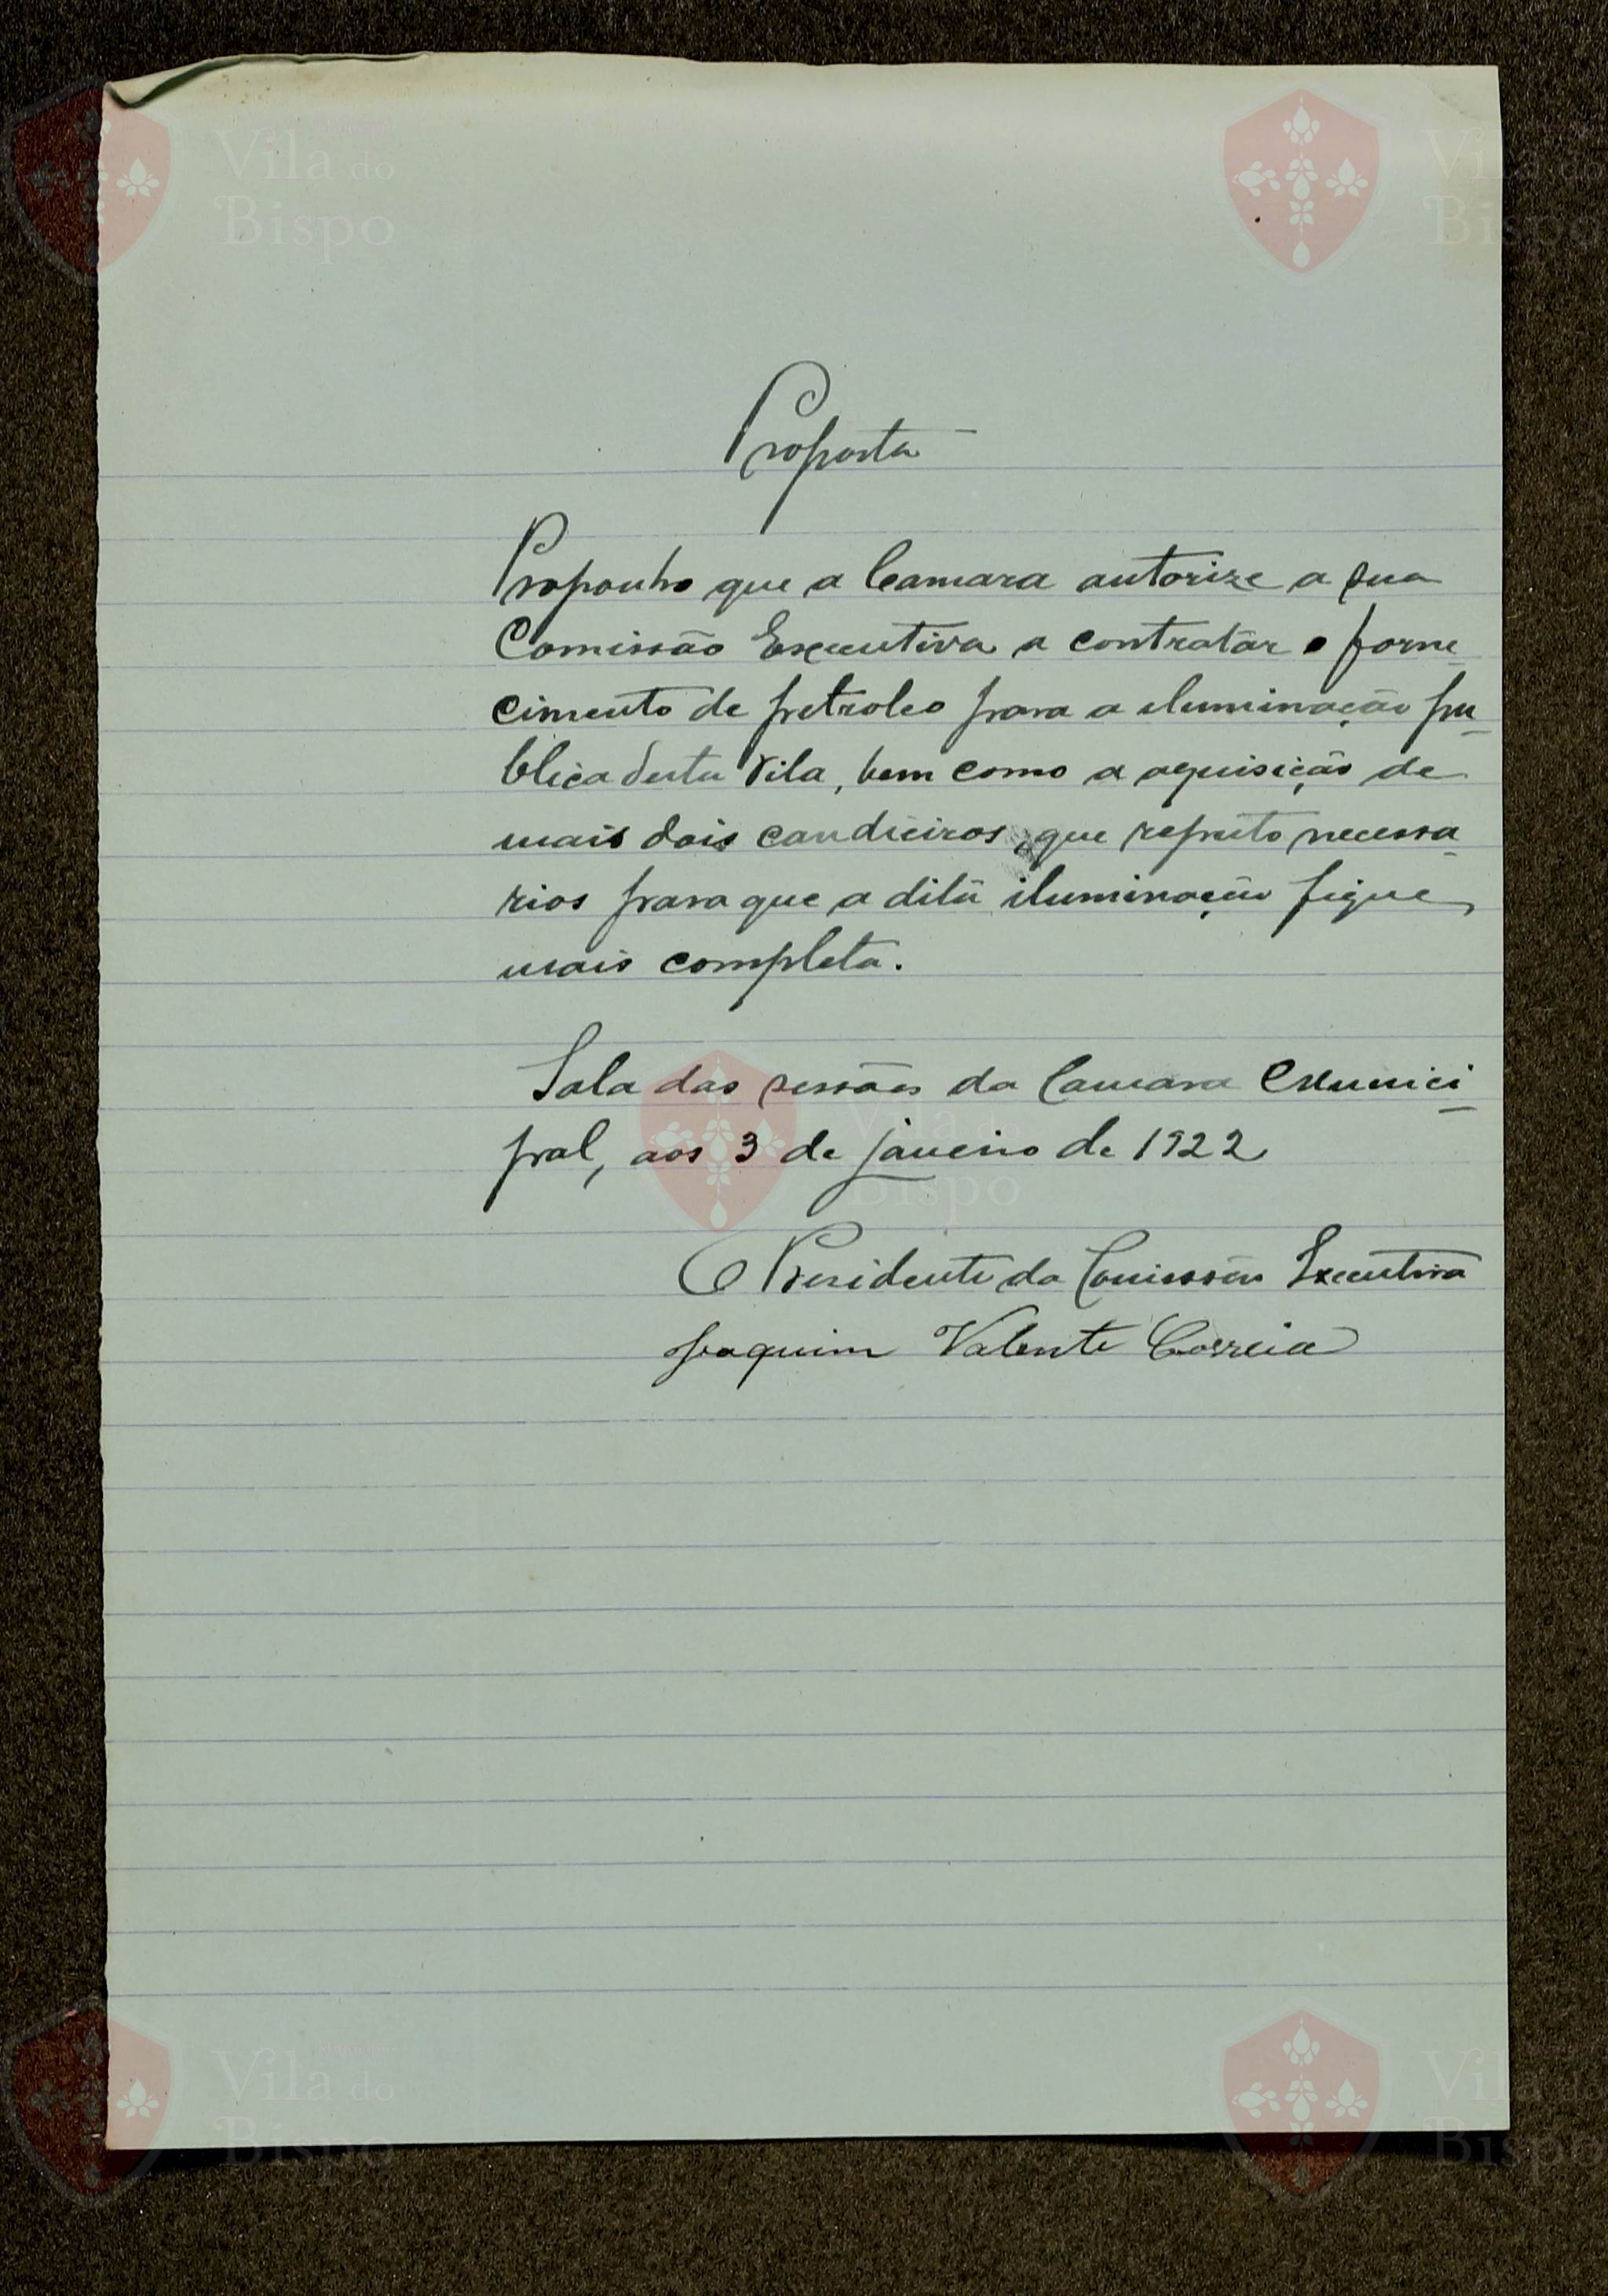 Vila do
Bispo
Vila do
Bispo
Proposta
Proponho que a Camara autorize a sua
Comissão Executiva a contratár o forne
cimento de petroleo para a iluminação pu
blica desta Vila, bem como a aquisição de
mais dois candieiros, que reputo necessa
rios para que a dita iluminação fique
mais completa.
Sala das sessões da Camara Munici
pal, aos 3 de janeiro de 1922
O Presidente da Comissão Executiva
Joaquim Valente Correia
Vila do
Bispo
Vila do
Bispo
Vila do
Bispo